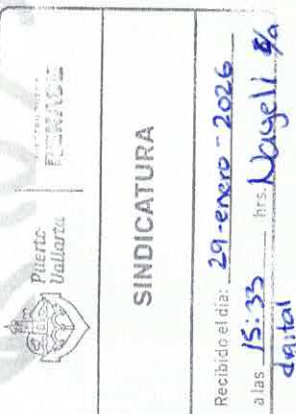 Puerto
Vallarta
SINDICATURA
Recibido el día: 29-enero-2026
a las 15:33 hrs. Nayeli s/a
digital